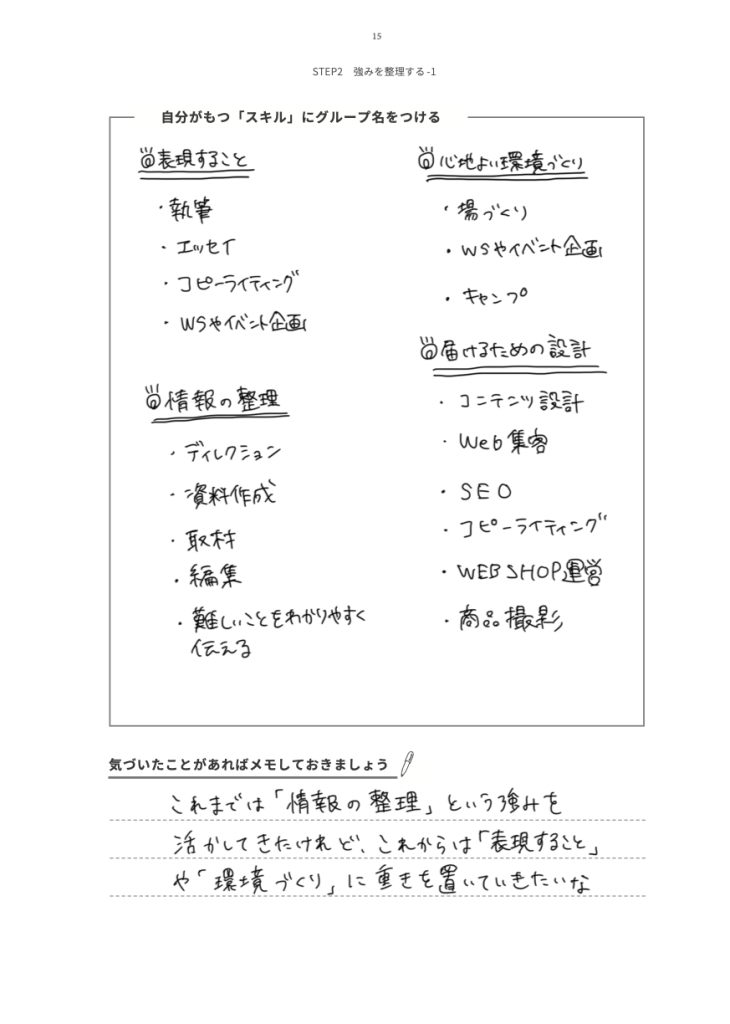 15
STEP2　強みを整理する -1
自分がもつ「スキル」にグループ名をつける
表現すること
・執筆
・エッセイ
・コピーライティング
・WSやイベント企画
情報の整理
・ディレクション
・資料作成
・取材
・編集
・難しいことをわかりやすく
伝える
心地よい環境づくり
・場づくり
・WSやイベント企画
・キャンプ
届けるための設計
・コンテンツ設計
・Web集客
・SEO
・コピーライティング
・WEB SHOP運営
・商品撮影
気づいたことがあればメモしておきましょう
これまでは「情報の整理」という強みを
活かしてきたけれど、これからは「表現すること」
や「環境づくり」に重きを置いていきたいな